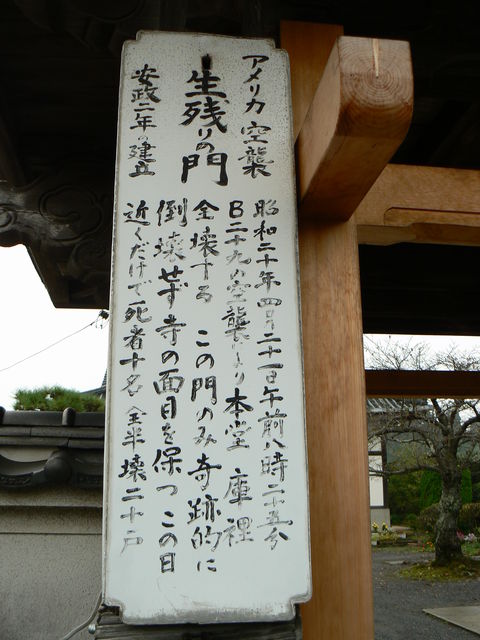 アメリカ空襲
生残りの門
安政二年の建立
昭和二十年四月二十一日午前八時二十五分
B二十九の空襲により本堂 庫裡
全壊する この門のみ奇跡的に
倒壊せず寺の面目を保つ この日
近くだけで死者十名 全半壊二十戸